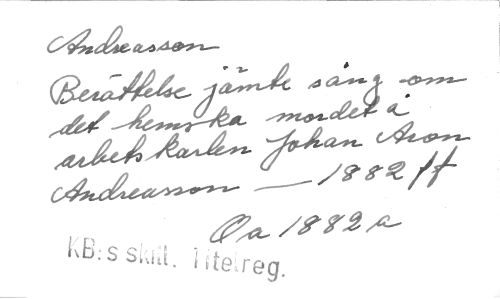 Andreasson
Berättelse jämte sång om
det hemska mordet å
arbetskarlen Johan Aron
Andreasson — 1882 ff
Oa 1882 a
KB:s skill. Titelreg.